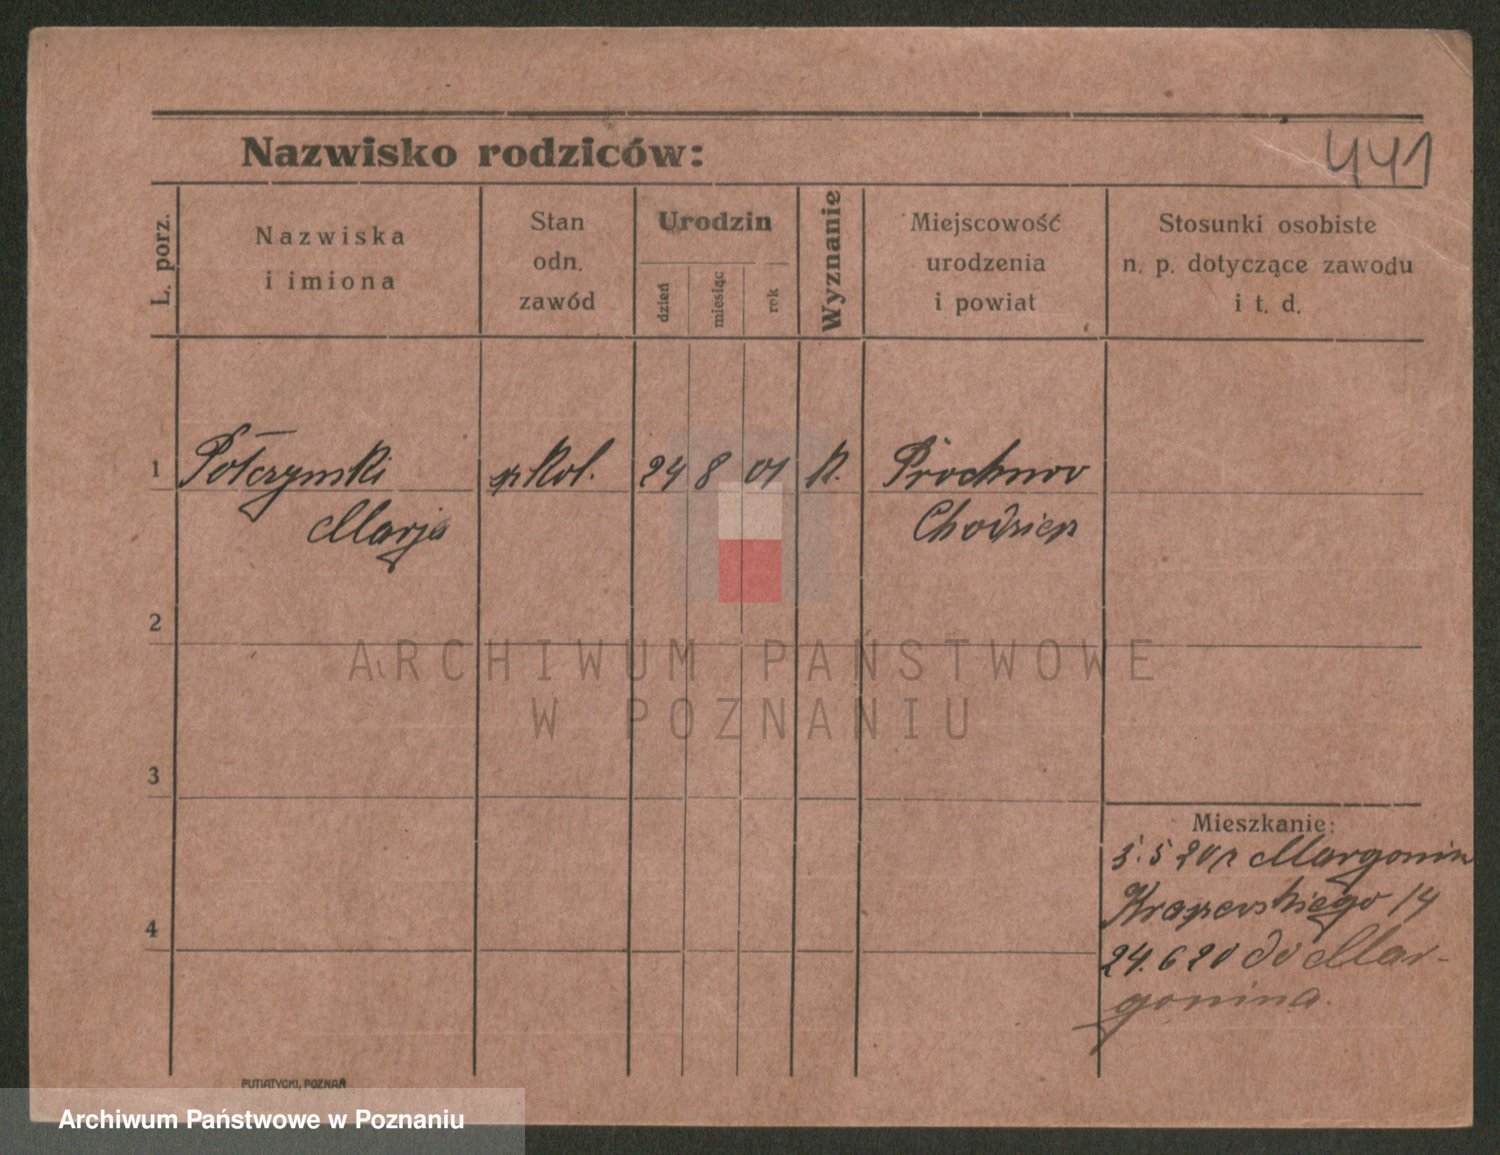 Nazwisko rodziców:
441
L. porz.
Nazwiska
i imiona
Stan
odn.
zawód
Urodzin
dzień
miesiąc
rok
Wyznanie
Miejscowość
urodzenia
i powiat
Stosunki osobiste
n. p. dotyczące zawodu
i t. d.
1
Połczynski
Marja
24 8 01 k.
Prochnow
Chodzież
2
3
4
ARCHIWUM PAŃSTWOWE
W POZNANIU
Mieszkanie:
5 20 r Margonin
Kraszewskiego 14
24.6 20 do Mar-
gonina.
PUTIATYCKI, POZNAŃ
Archiwum Państwowe w Poznaniu